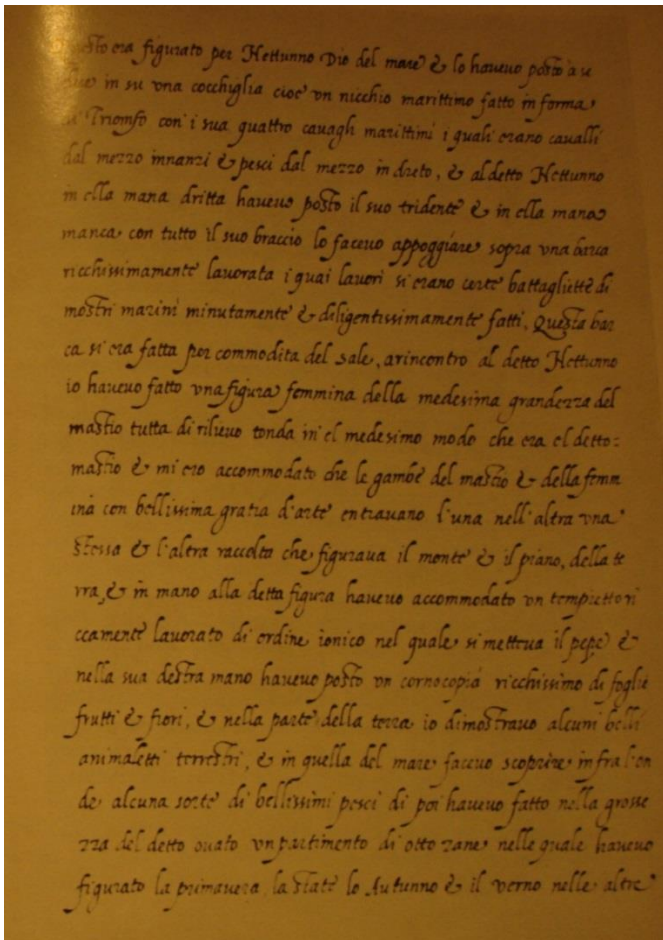 Questo era figurato per Nettunno Dio del mare & lo havevo posto a se
dere in su una cocchiglia cioe un nicchio marittimo fatto in forma
di Triomfo con i sua quattro cavagli marittimi i quali erano cavalli
dal mezzo innanzi & pesci dal mezzo in dreto, & al detto Nettunno
in ella mana dritta havevo posto il suo tridente & in ella mana
manca con tutto il suo braccio lo facevo appoggiare sopra una barca
ricchissimamente lavorata i quai lavori si erano certe battagliette di
mostri marini minutamente & diligentissimamente fatti. Questa bar
ca si era fatta per commodita del sale, arincontro al detto Nettunno
io havevo fatto una figura femmina della medesima grandezza del
mastio tutta di rilievo tonda in el medesimo modo che era el detto:
mastio & mi ero accommodato che le gambe del mastio & della femm
ina con bellissima gratia d'arte entravano l'una nell'altra una
stesa & l'altra raccolta che figurava il monte & il piano, della te
rra, & in mano alla detta figura havevo accommodato un tempietto ri
ccamente lavorato di ordine ionico nel quale si metteva il pepe &
nella sua destra mano havevo posto un cornocopia ricchissimo di foglie
frutti & fiori, & nella parte della terra io dimostravo alcuni belli
animaletti terrestri, & in quella del mare facevo scoprire infra l'on
de alcuna sorte di bellissimi pesci di poi havevo fatto nella grosse
zza del detto ovato un partimento di otto zane nelle quale havevo
figurato la primavera la state lo Autunno & il verno nelle altre